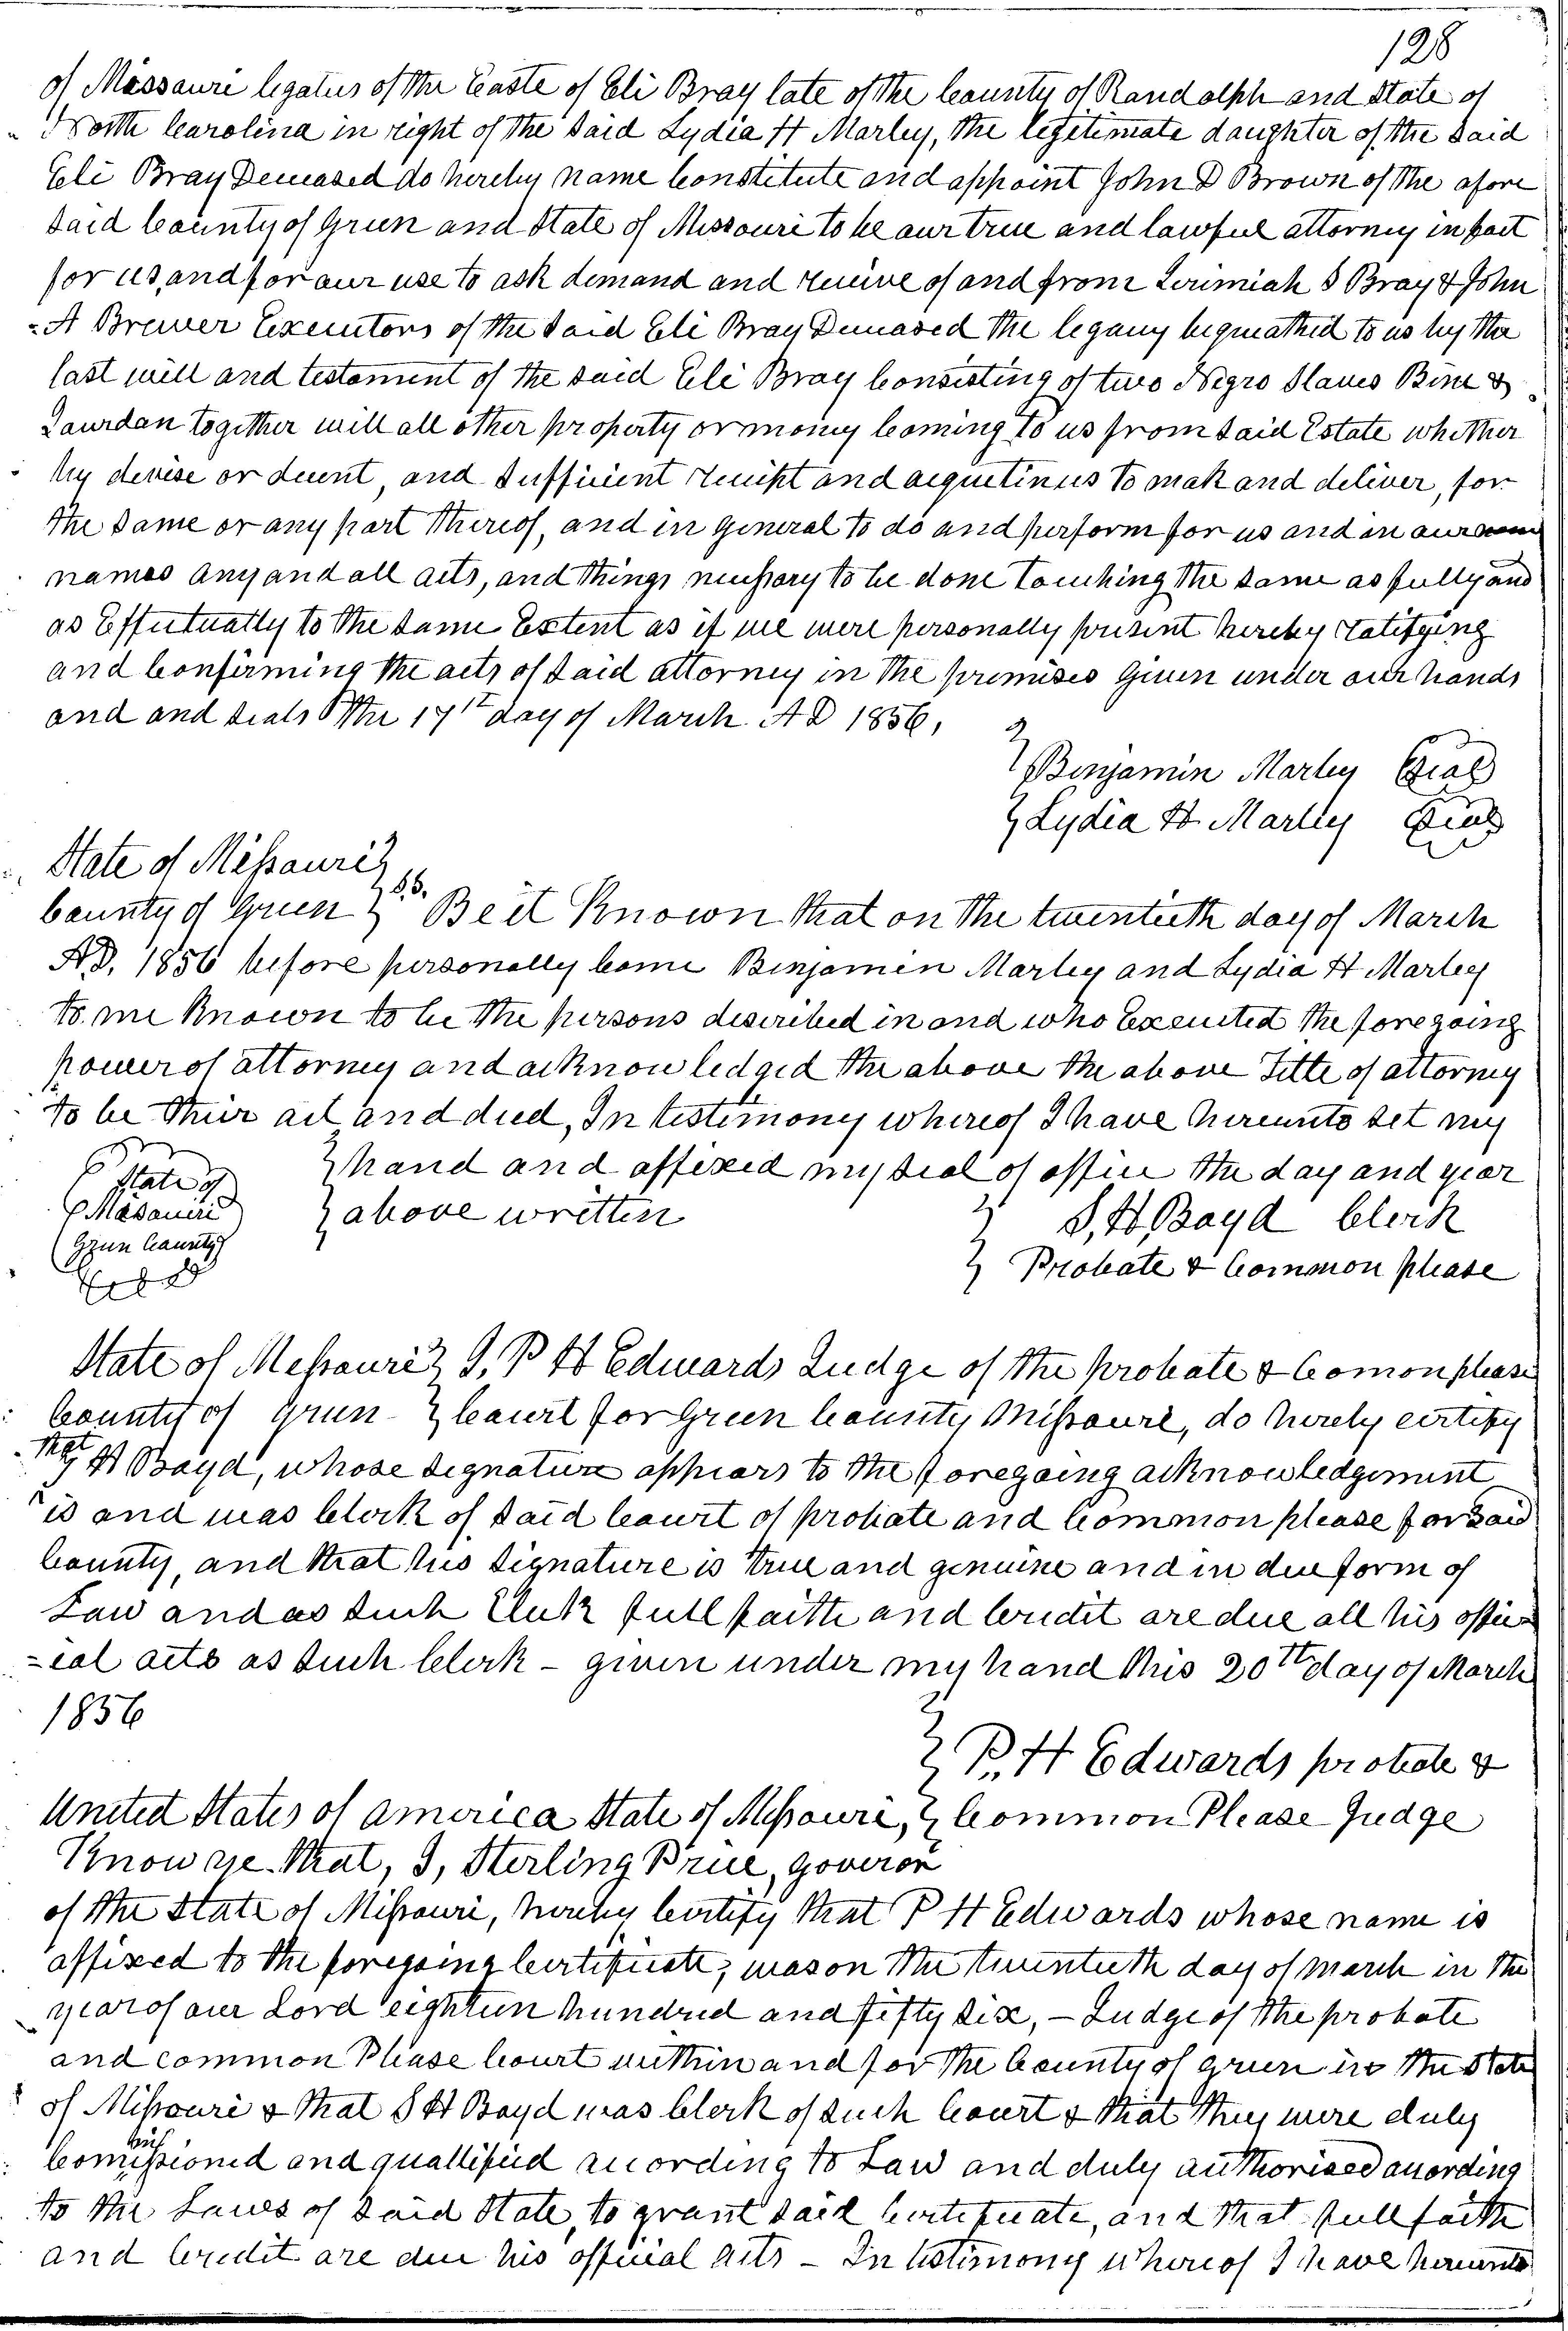 128
of Missouri legatus of the Easte of Eli Bray late of the County of Randolph and State of
North Carolina in right of the said Lydia H Marley, the legetimate daughter of the said
Eli Bray Deceased do hereby name Constitute and appoint John D Brown of the afore
said County of Green and State of Missouri to be our true and lawful attorney in fact
for us, and for our use to ask demand and receive of and from Jerimiah S Bray & John
A Brewer Executors of the said Eli Bray Deceased the legacy bequeathed to us by the
last will and testament of the said Eli Bray Consisting of two Negro Slaves Bine &
Jourdan together will all other property or money Coming to us from said Estate whether
by devise or decent, and sufficient receipt and acquetinces to mak and deliver, for
the same or any part thereof, and in general to do and perform for us and in our
names any and all acts, and things necessary to be done touching the same as fully and
as Effectually to the same Extent as if we were personally present hereby ratifying
and Confirming the acts of said attorney in the premises Given under our hands
and and seals the 17th day of March A D 1856,
Benjamin Marley Seal
Lydia H. Marley Seal
State of Missouri
County of Green S.S. Be it Known that on the twentieth day of March
A.D. 1856 before personally Come Benjamin Marley and Lydia H Marley
to me Known to be the persons described in and who Executed the foregoing
power of attorney and acknowledged the above the above Title of attorney
to be their act and deed, In testimony whereof I have hereunto set my
hand and affixed my seal of office the day and year
above written
State of
Missouri
Green County
Seal
S, H, Boyd Clerk
Probate & Common please
State of Missouri I, P H Edwards Judge of the probate & Comon please
County of Green Court for Green County Missouri, do hereby certify
that S H Boyd, whose signature appears to the foregoing acknowledgement
is and was Clerk of said Court of probate and Common please for said
County, and that his signature is true and genuine and in due form of
Law and as such Clerk full faith and Credit are due all his offic
-ial acts as such Clerk - given under my hand this 20th day of March
1856
P. H Edwards probate &
United States of america State of Missouri, Common Please Judge
Know ye that, I, Sterling Price, goveror
of the State of Missouri, hereby Certify that P H Edwards whose name is
affixed to the foregoing Certificate, was on the twentieth day of march in the
year of our Lord eighteen hundred and fifty six, - Judge of the probate
and common Please Court within and for the County of green in the State
of Missouri & that S H Boyd was Clerk of such Court & that they were duly
Comissioned and quallified according to Law and duly authorised according
to the Laws of said State, to grant said Certificate, and that full faith
and Credit are due his official acts - In testimony whereof I have hereunto